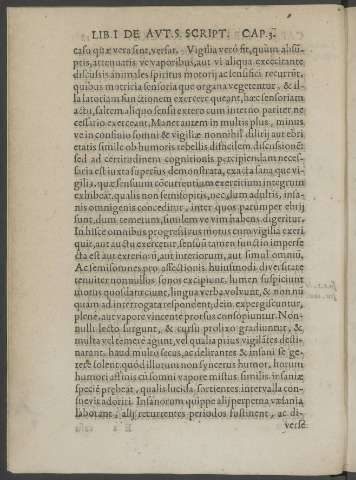 LIB. I DE AVT. S. SCRIPT. CAP. 3.
casu quæ vera sint, versat. Vigilia verò fit, quùm absũ-
ptis, attenuatis ve vaporibus, aut vi aliqua excecitante
discussis animales spiritus motorij ac sensifici recurrũt,
quibus matricia sensoria que organa vegetentur, & il-
la satotiam functionem exercere queant, hæc sensoriam
actu, saltem aliquo sensu extero cum interno pariter ne-
cessario exerceant. Manet autem in multis plus, minus
ve in confinio somni & vigiliæ nonnihil dilirij aut ebri
etatis simile ob humoris rebellis difficilem discussionẽ:
sed ad certitudinem cognitionis percipiendam neces-
saria est iuxta superius demonstrata, exacta sana que vi-
gilia, quæ sensuum cõcurrentium exercitium integrum
exhibeat, qualis non semisopitis, nec dum adultis, insa-
nis omnigenis conceditur, inter quos parumper ebrij
sunt, dum temetum, similem ve vim habens digeritur.
In hisce omnibus progressivus motus cum vigilia exeri
quit, aut auctu exercetur, sensuũ tamen functio imperfe
cta est aut exteriorũ, aut interiorum, aut simul omniũ.
Ac semisomnes pro affectionis huiusmodi diversitate
tenuiter nonnullos sonos excipiunt, lumen suspiciunt
motus quosdam ciunt, lingua verba volvunt, & non nũ
quam ad interrogata respondent, dein expergiscuntur,
plenè, aut vapore vincente prorsus consopiuntur. Non-
nulli lecto surgunt, & cursu prolixo gradiuntur, &
multa vel temerè agunt, vel qualia prius vigilãtes desti-
narant. haud multo secus, ac delirantes & insani se ge-
rere solent quòd illorum non syncerus humor, horum
humori astionis cũ somni vapore mistus similis insaniæ
speciẽ præbeat, qualis lucida, sortientes intervalla con-
suevit adoriri. Insanorum quippe alij perpetua væsania
laborant, alij recurrentes periodos sustinent, ac di-
verse